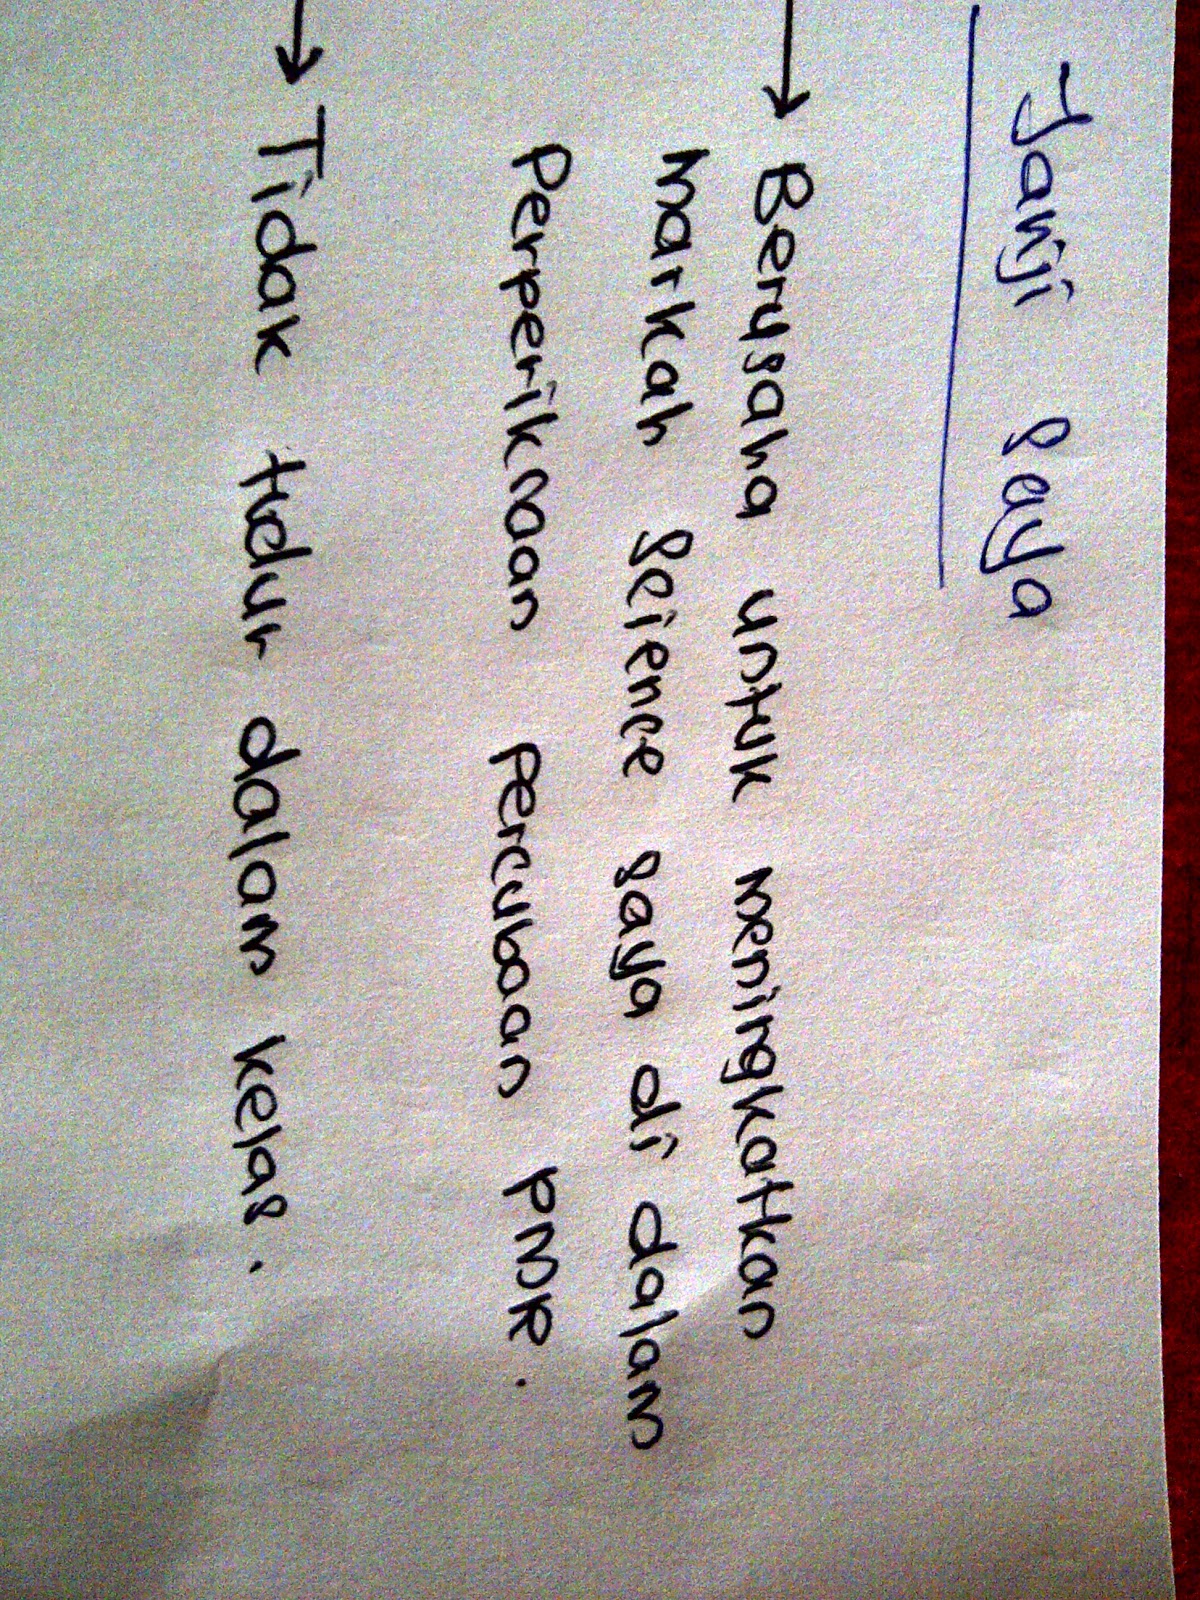 Janji saya
→ Berusaha untuk meningkatkan
markah seience saya di dalam
perperiksaan percubaan PMR.
→ Tidak tidur dalam kelas.